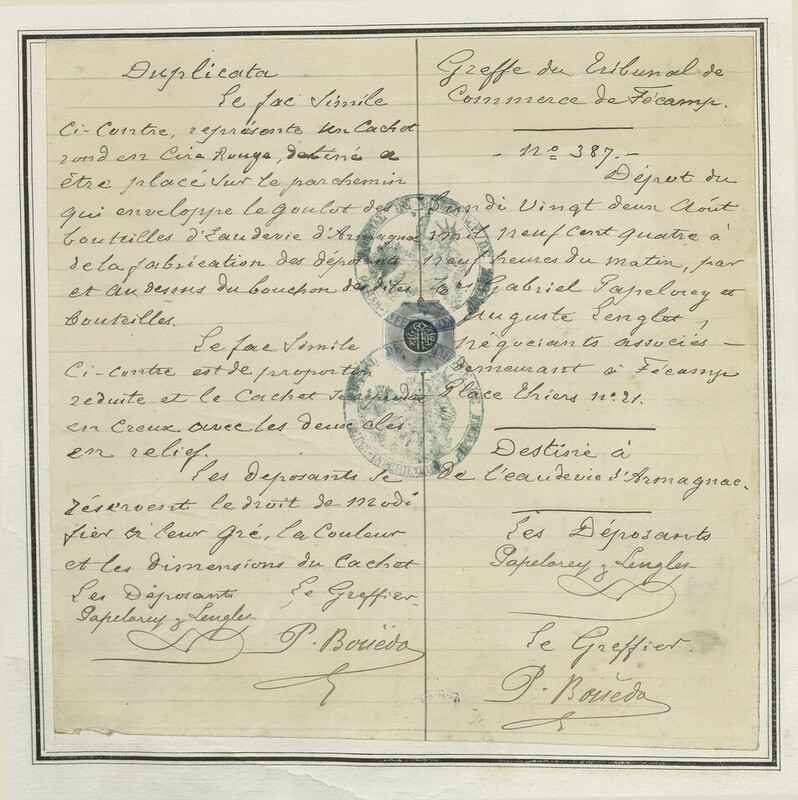 Duplicata
Le fac Simile
Ci-contre, représente un Cachet
rond en Cire Rouge, destiné a
être placé sur le parchemin
qui enveloppe le goulot des
bouteilles d'Eaudevie d'Armagnac
de la fabrication des déposants
et au dessus du bouchon des dites
bouteilles.
Le fac Simile
Ci-contre est de proportion
réduite et le Cachet se reproduit
en Creux avec les deux clés
en relief.
Les Déposants se
réservent le droit de modi
fier à leur gré, la Couleur
et les dimensions du Cachet
Les Déposants Le Greffier
Papelorey & Lenglet
P. Bouëdo
Greffe du Tribunal de
Commerce de Fécamp.
- No 387. -
Dépot du
Lundi Vingt deux Août
mil neuf Cent quatre à
neuf heures du matin, par
Gabriel Papelorey et
Auguste Lenglet,
négociants associés -
demeurant à Fécamp
Place Thiers no 21.
Destiné à
De l'eaudevie d'Armagnac.
Les Déposants
Papelorey & Lenglet
Le Greffier.
P. Bouëdo